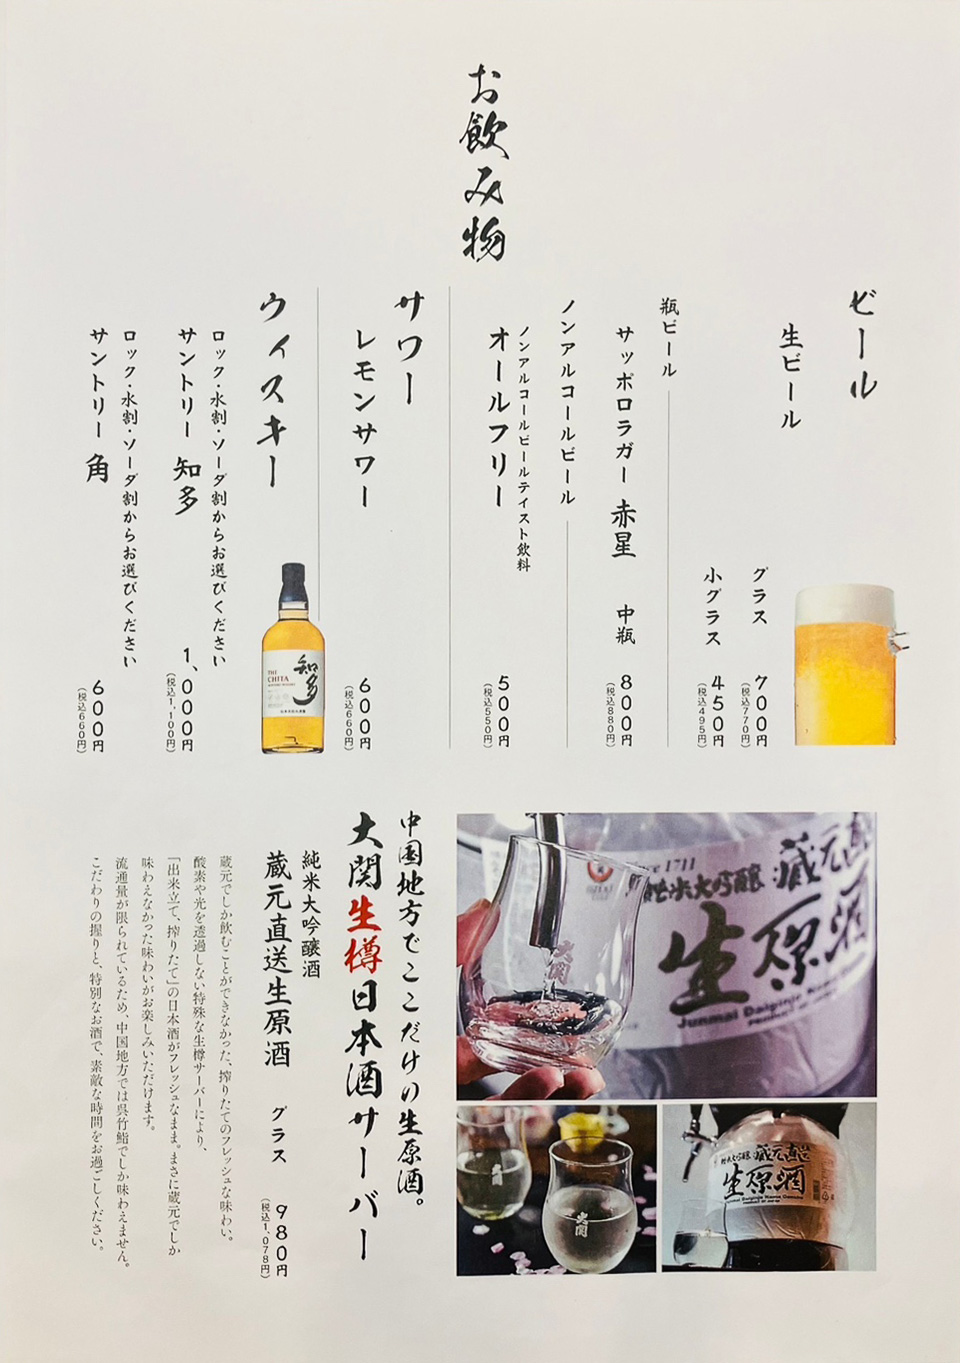 お飲み物
ビール
生ビール
グラス 700円
(税込770円)
小グラス 450円
(税込495円)
瓶ビール
サッポロラガー 赤星 中瓶 800円
(税込880円)
ノンアルコールビール
ノンアルコールビールテイスト飲料
オールフリー 500円
(税込550円)
サワー
レモンサワー 600円
(税込660円)
ウィスキー
ロック・水割・ソーダ割からお選びください
サントリー 知多 1,000円
(税込1,100円)
ロック・水割・ソーダ割からお選びください
サントリー 角 600円
(税込660円)
知多
THE
CHITA
since 1711
純米大吟醸 蔵元直送
生原酒
Junmai Daiginjo
大関
大関
大関
蔵元直送
生原酒
中国地方でここだけの生原酒。
大関生樽日本酒サーバー
純米大吟醸酒
蔵元直送生原酒 グラス 980円
(税込1,078円)
蔵元でしか飲むことができなかった、搾りたてのフレッシュな味わい。
酸素や光を透過しない特殊な生樽サーバーにより、
「出来立て、搾りたて」の日本酒がフレッシュなまま。まさに蔵元でしか
味わえなかった味わいがお楽しみいただけます。
流通量が限られているため、中国地方では呉竹鮨でしか味わえません。
こだわりの握りと、特別なお酒で、素敵な時間をお過ごしください。